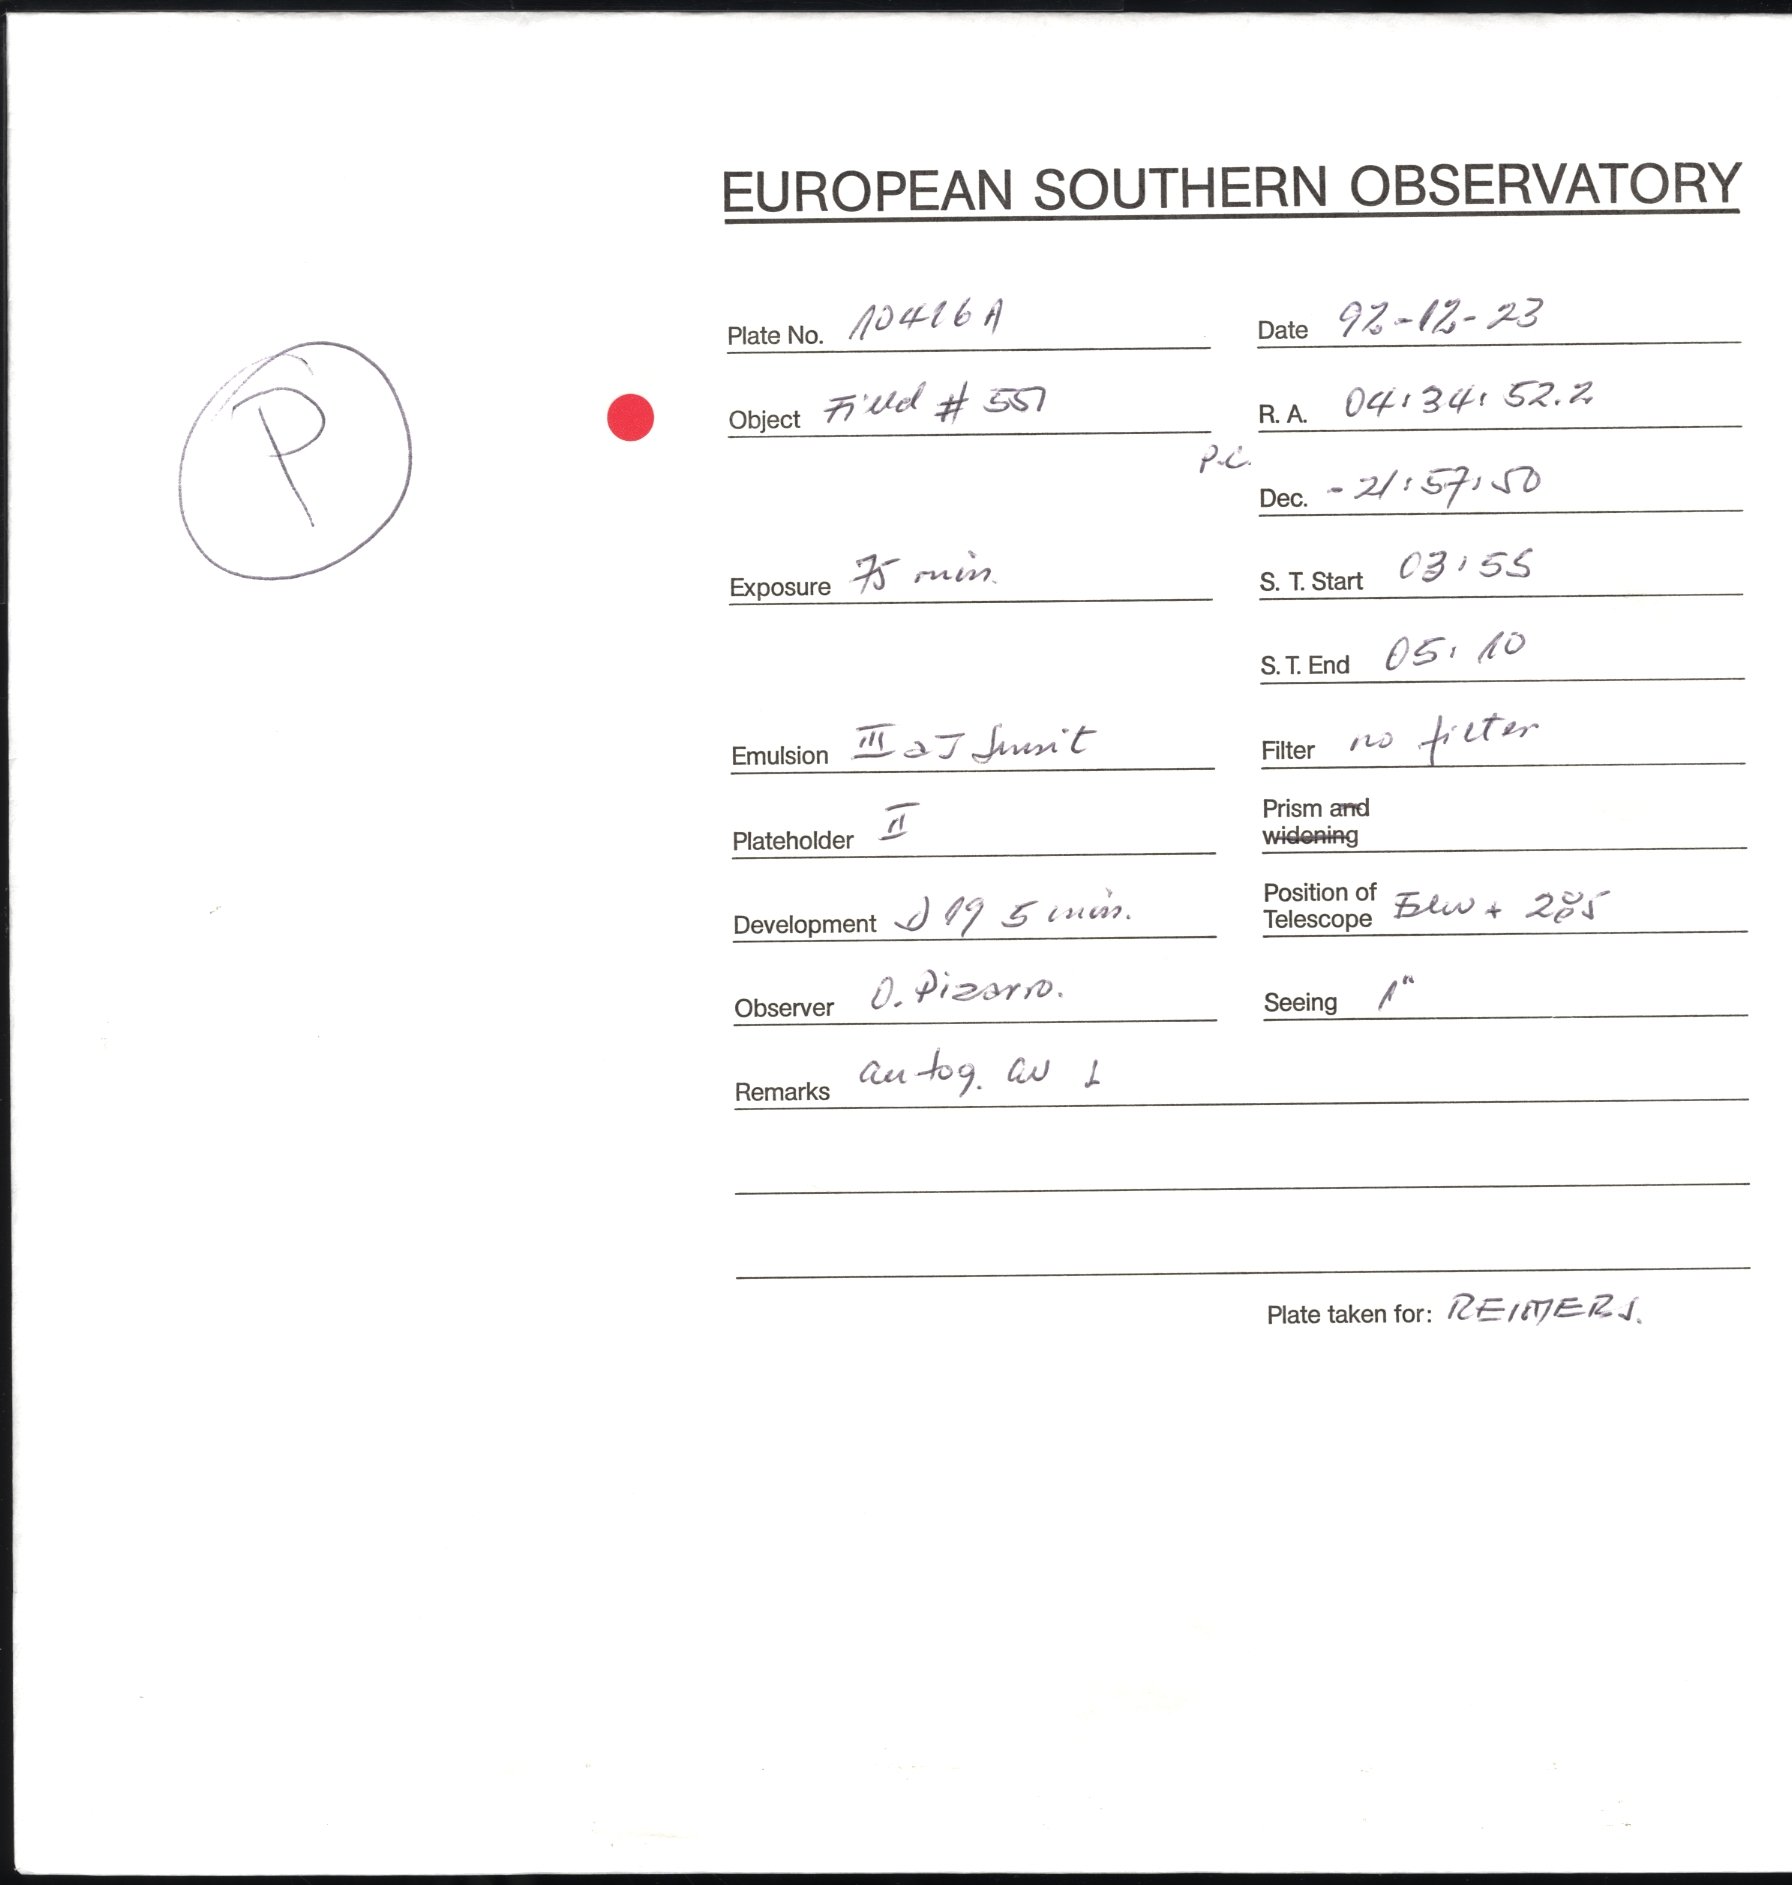 EUROPEAN SOUTHERN OBSERVATORY
Plate No. 10416 A
Date 92-12-23
P
Object Field # 551
R. A. 04:34:52.2
P.C.
Dec. -21:57:50
Exposure 75 min.
S. T. Start 03:55
S. T. End 05:10
Emulsion III aJ
Filter no filter
Plateholder II
Prism and
widening
Development D 19 5 min.
Position of
Telescope
Observer O. Pizarro.
Seeing 1"
Remarks autog.
Plate taken for: REIMERS.